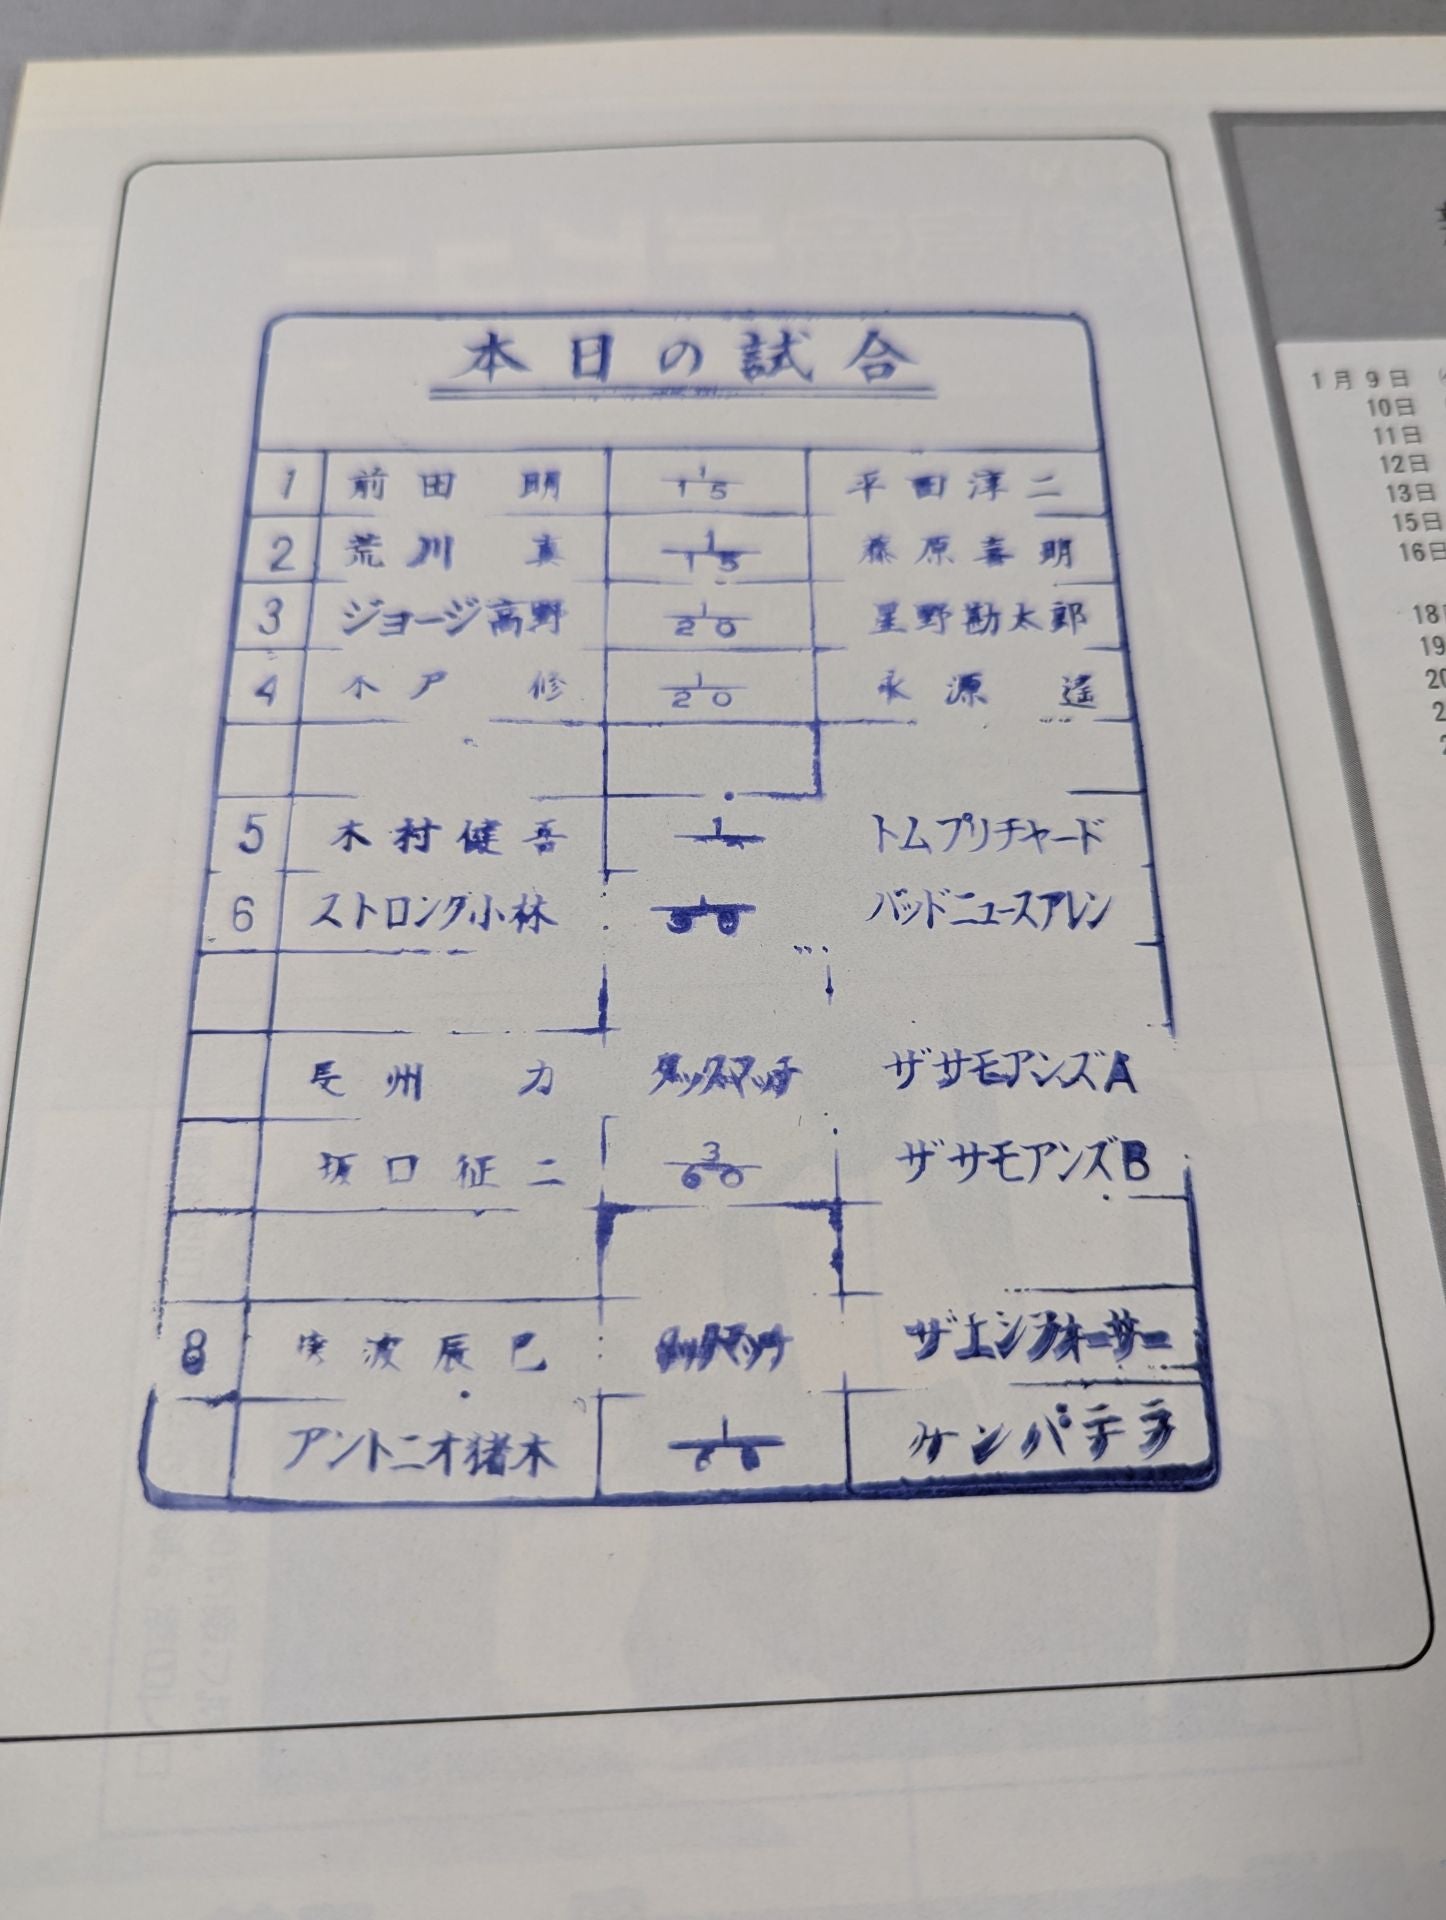 本日の試合
1 前田 明 1/15 平田淳二
2 荒川 真 1/15 藤原喜明
3 ジョージ高野 1/20 星野勘太郎
4 木戸 修 1/20 永源 遥
5 木村健吾 1/ トムプリチャード
6 ストロング小林 1/30 バッドニュースアレン
長州 力 タッグマッチ ザサモアンズA
坂口征二 3/60 ザサモアンズB
8 波辰巳 タッグマッチ ザエンフォーサー
アントニオ猪木 1/60 ケンパテラ
1月9日
10日
11日
12日
13日
15日
16日
18
19
20